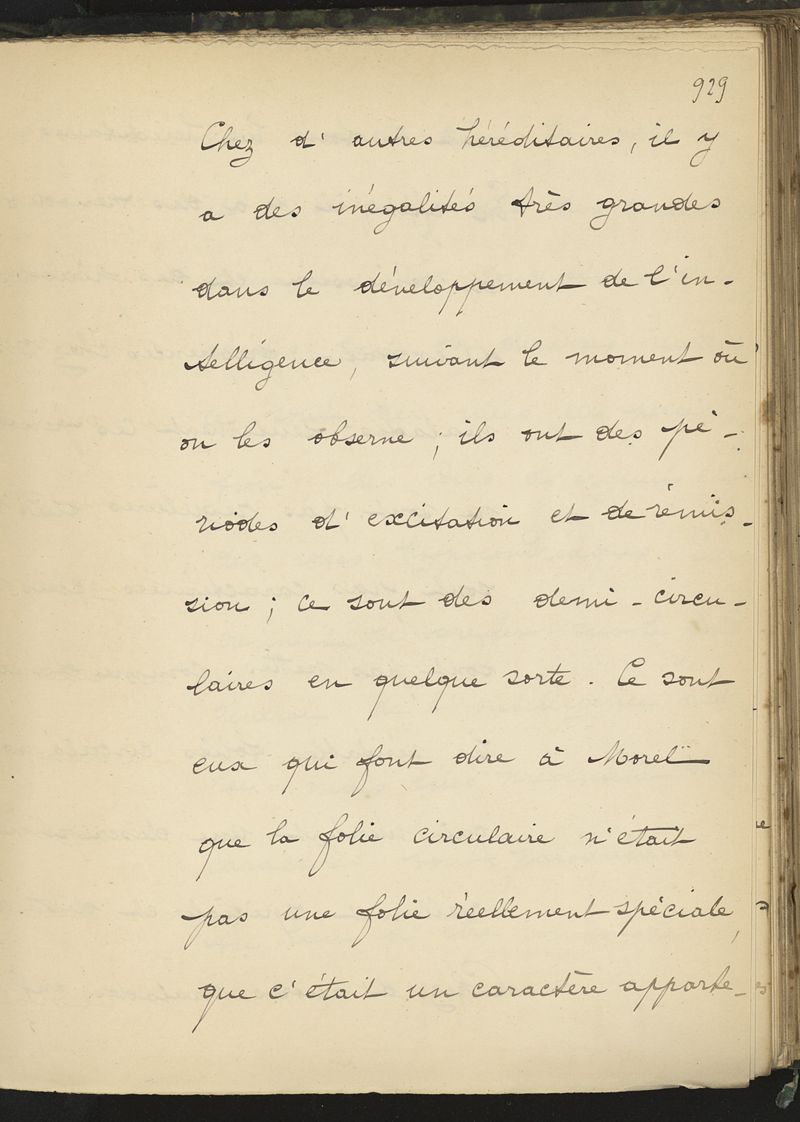 929
Chez d' autres héréditaires, il y
a des inégalités très grandes
dans le développement de l'in-
telligence, suivant le moment où
on les observe ; ils ont des pé-
riodes d' excitation et de rémis-
sion ; ce sont des demi-circu-
laires en quelque sorte. Ce sont
eux qui font dire à Morel
que la folie circulaire n'était
pas une folie réellement spéciale,
que c'était un caractère apparte-